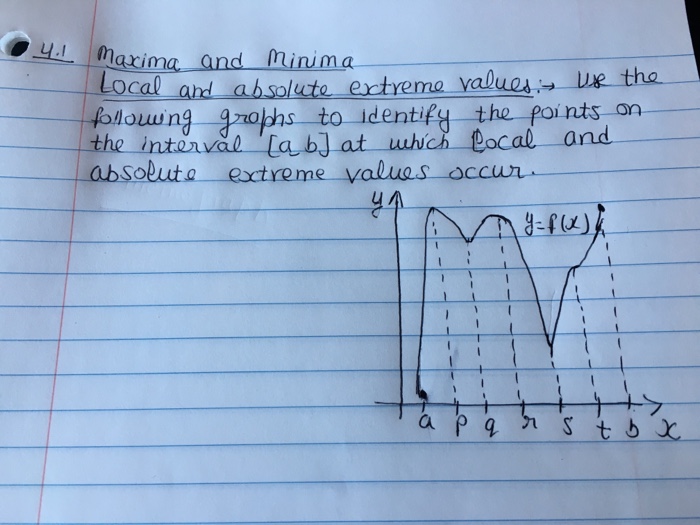 4.1 Maxima and Minima
Local and absolute extreme values:→ Use the
following graphs to identify the points on
the interval [a b] at which local and
absolute extreme values occur.
y
y=f(x)
a p q r s t b x